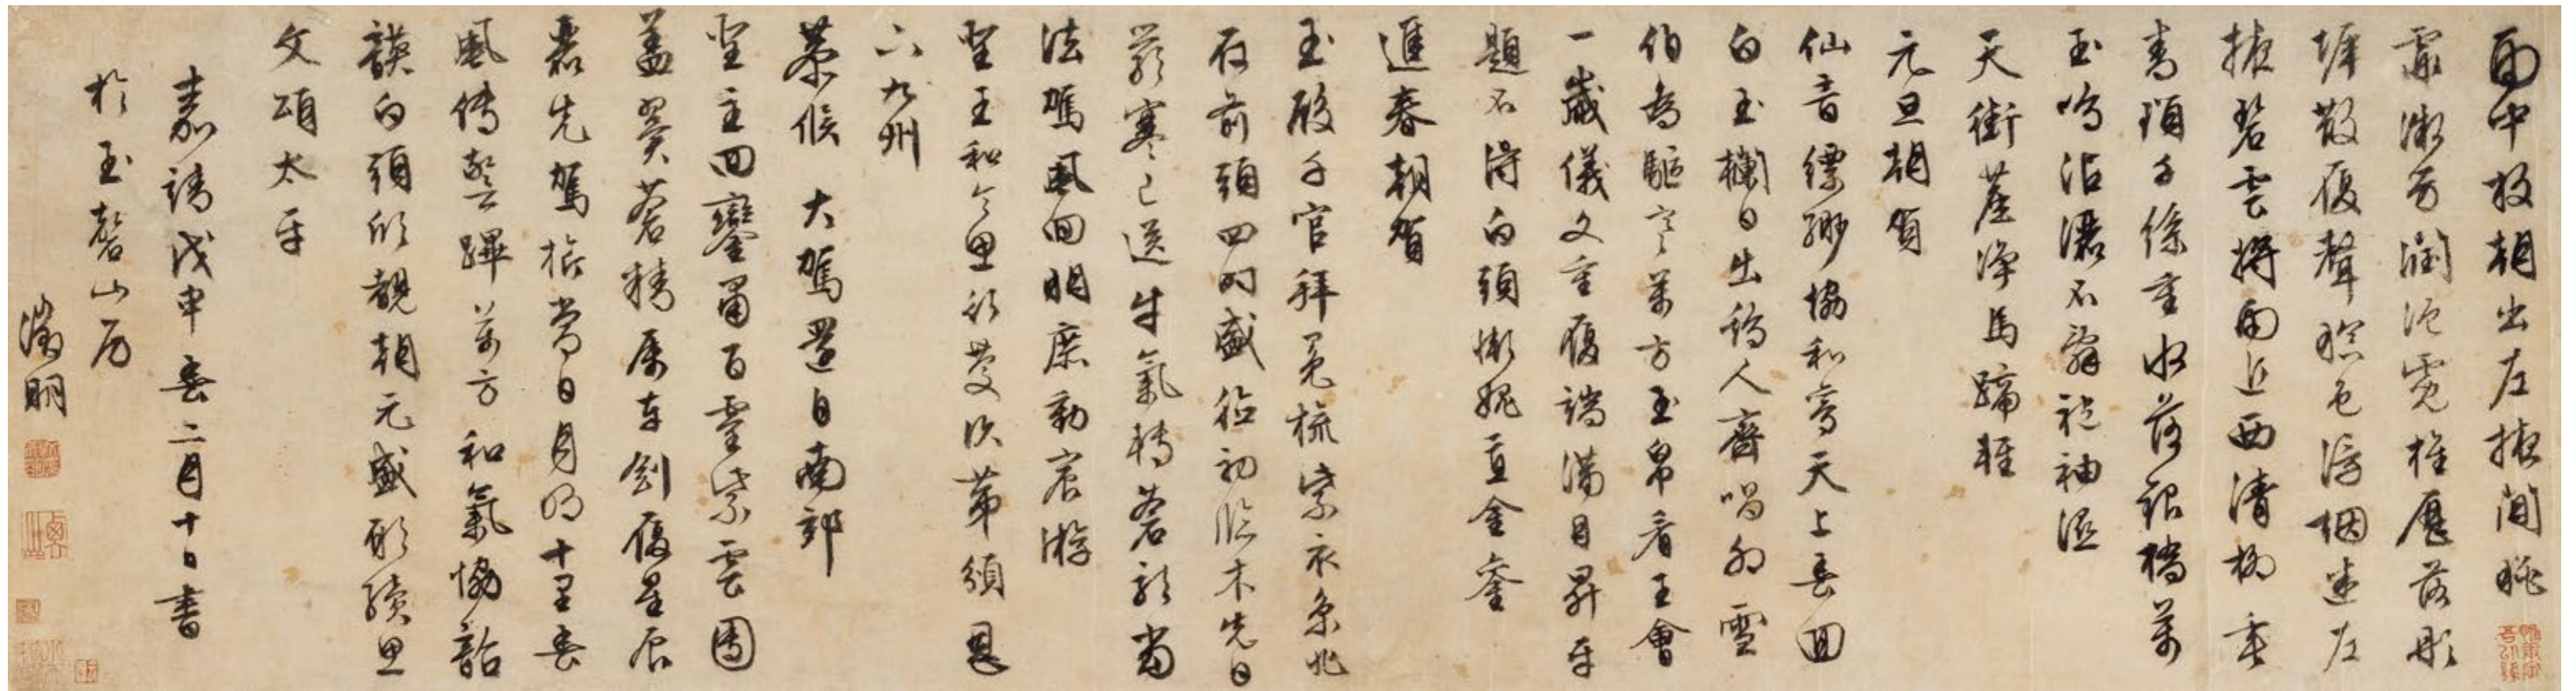 雨中放朝出左掖閒眺
霏微芳潤浥霓旌鴈落彤
墀散履聲暝色浮烟迷左
掖碧雲將雨近西清柳垂
青瑣千條重水落銀橋萬
玉鳴沾灑不辭袍袖濕
天街塵淨馬蹄輕
元旦朝賀
仙音縹緲協和鸞天上春回
白玉欄日出鷄人齊唱卯雪
伯為驅寒萬方玉帛看王會
一歲儀文重履端滿目昇平
題不得白頭慚愧直金鑾
進春朝賀
玉殿千官拜冕旒紫衣京兆
在前頭四時盛德初臨木先日
嚴寒已送牛氣轉蒼龍當
法駕風回明庶動宸游
聖王和令思行慶次第頒恩
下九州
恭候 大駕還自南郊
聖主回鑾肅百靈紫雲團
蓋翼蒼精屬車劍履星辰
麗先駕旂常日月明十里春
風傳警蹕萬方和氣協韶
頀白頭欣覩朝元盛願續思
文頌太平
嘉靖戊申春二月十日書
於玉磬山房
徵明